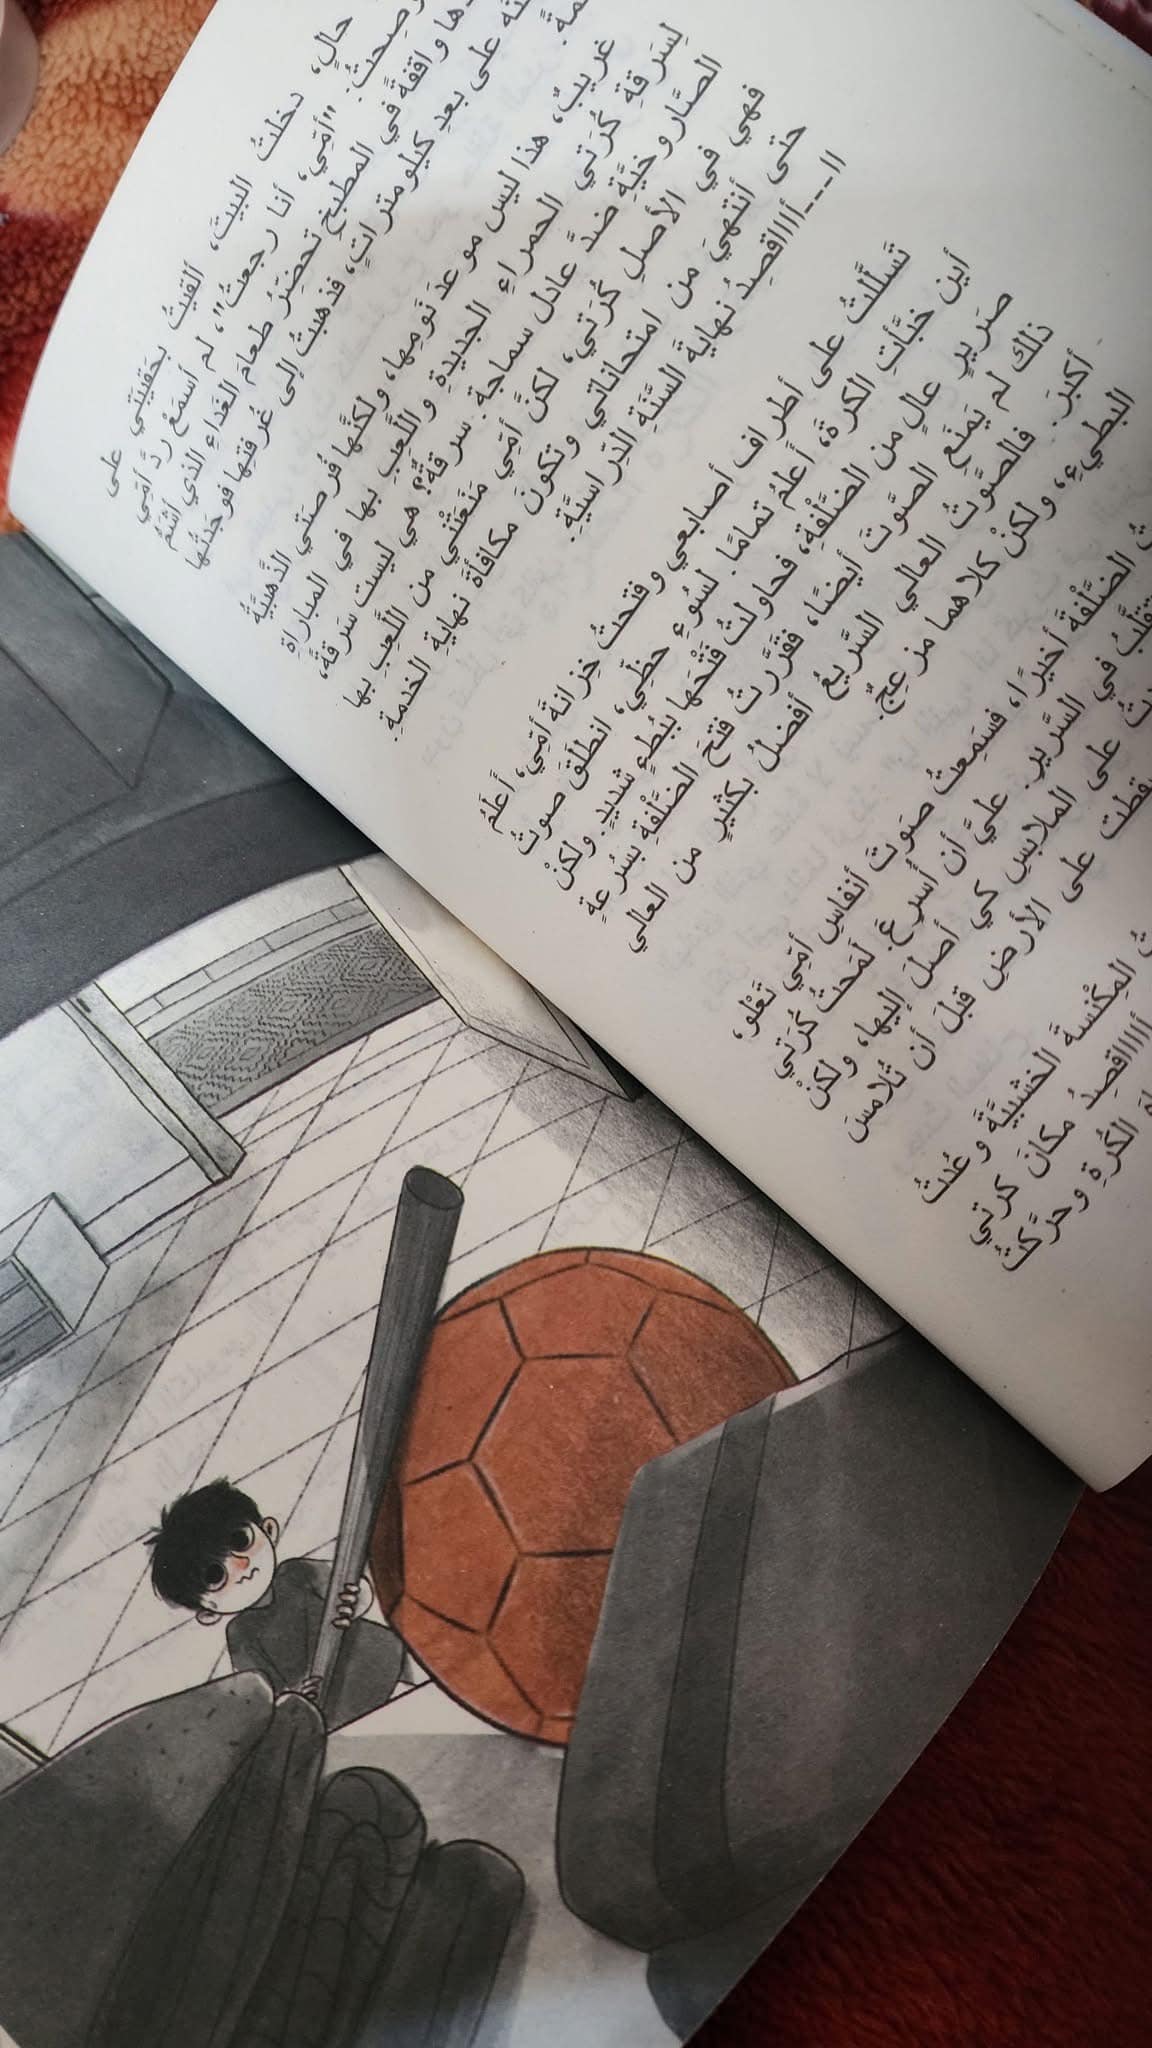 حالٍ، دخلتُ البيتَ، ألقيتُ بحَقيبَتي على
وصِحتُ: "أمّي، أنا رجعتُ"، لم أسمَعْ ردَّ أمّي
واقفةً في المطبخِ تحضِّرُ طعامَ الغَداءِ الذي أشتمُّ
على بعدِ كيلومتراتٍ، فذهبتُ إلى غُرفتِها فوجَدتُها
غريبٌ، هذا ليس موعدَ نَومِها، ولكنَّها فُرصَتي الذَّهبيَّةُ
لِسَرقةِ كُرَتي الحمراءِ الجديدةِ واللَّعِبِ بها في المباراةِ
الصَّاروخيَّةِ ضدَّ عادل سماجة. سرقةٌ؟ هي ليست سَرقةً،
فهي في الأصلِ كُرَتي، لكنَّ أمّي مَنَعَتْني من اللَّعِبِ بها
حتى أنتهيَ من امتحاناتي وتكونَ مكافأةَ نهايةِ الخدمةِ.
اا---أاااقصِدُ نهايةَ السَّنةِ الدِّراسيَّةِ.
تَسلَّلتُ على أطراف أصابعي وفتحتُ خِزانةَ أمّي، أَعلَمُ
أين خبَّأتِ الكرةَ، أَعلمُ تمامًا. لسُوءِ حظِّي، انطلَقَ صوتُ
صَريرٍ عالٍ من الضَّلْفةِ، فحاولتُ فَتْحَها ببُطءٍ شديدٍ. ولكنْ
ذلك لم يَمنَعِ الصَّوتَ أيضًا، فقَرَّرتُ فتحَ الضَّلْفةِ بسُرعةٍ
أكبرَ. فالصَّوتُ العالي السَّريعُ أفضلُ بكثيرٍ من العالي
البطيءِ، ولكنْ كلاهما مزعِجٌ.
الضَّلْفةَ أخيرًا، فسَمِعتُ صَوتَ أنفاسِ أمّي تَعْلو،
تتقلَّبُ في السَّريرِ. عليَّ أن أُسرِعَ. لَمَحتُ كُرَتي
على الملابسِ كي أصلَ إليها، ولكنْ
على الأرضِ قبلَ أن تُلامسَ
المِكْنسةَ الخشبيَّةَ وعُدتُ
أاااااقصِدُ مكانَ كرتي
الكُرةِ وحرَّكتُ